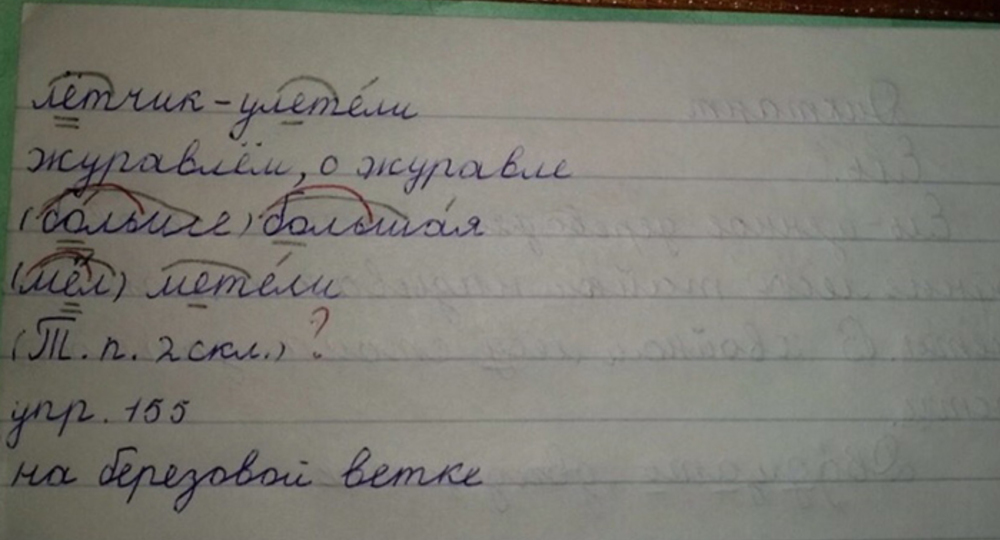 лётчик - улете́ли
журавлём, о журавле
(больше) больша́я
(мёл) мете́ли
(Т. п. 2 скл.) ?
упр. 155
на березовой ветке